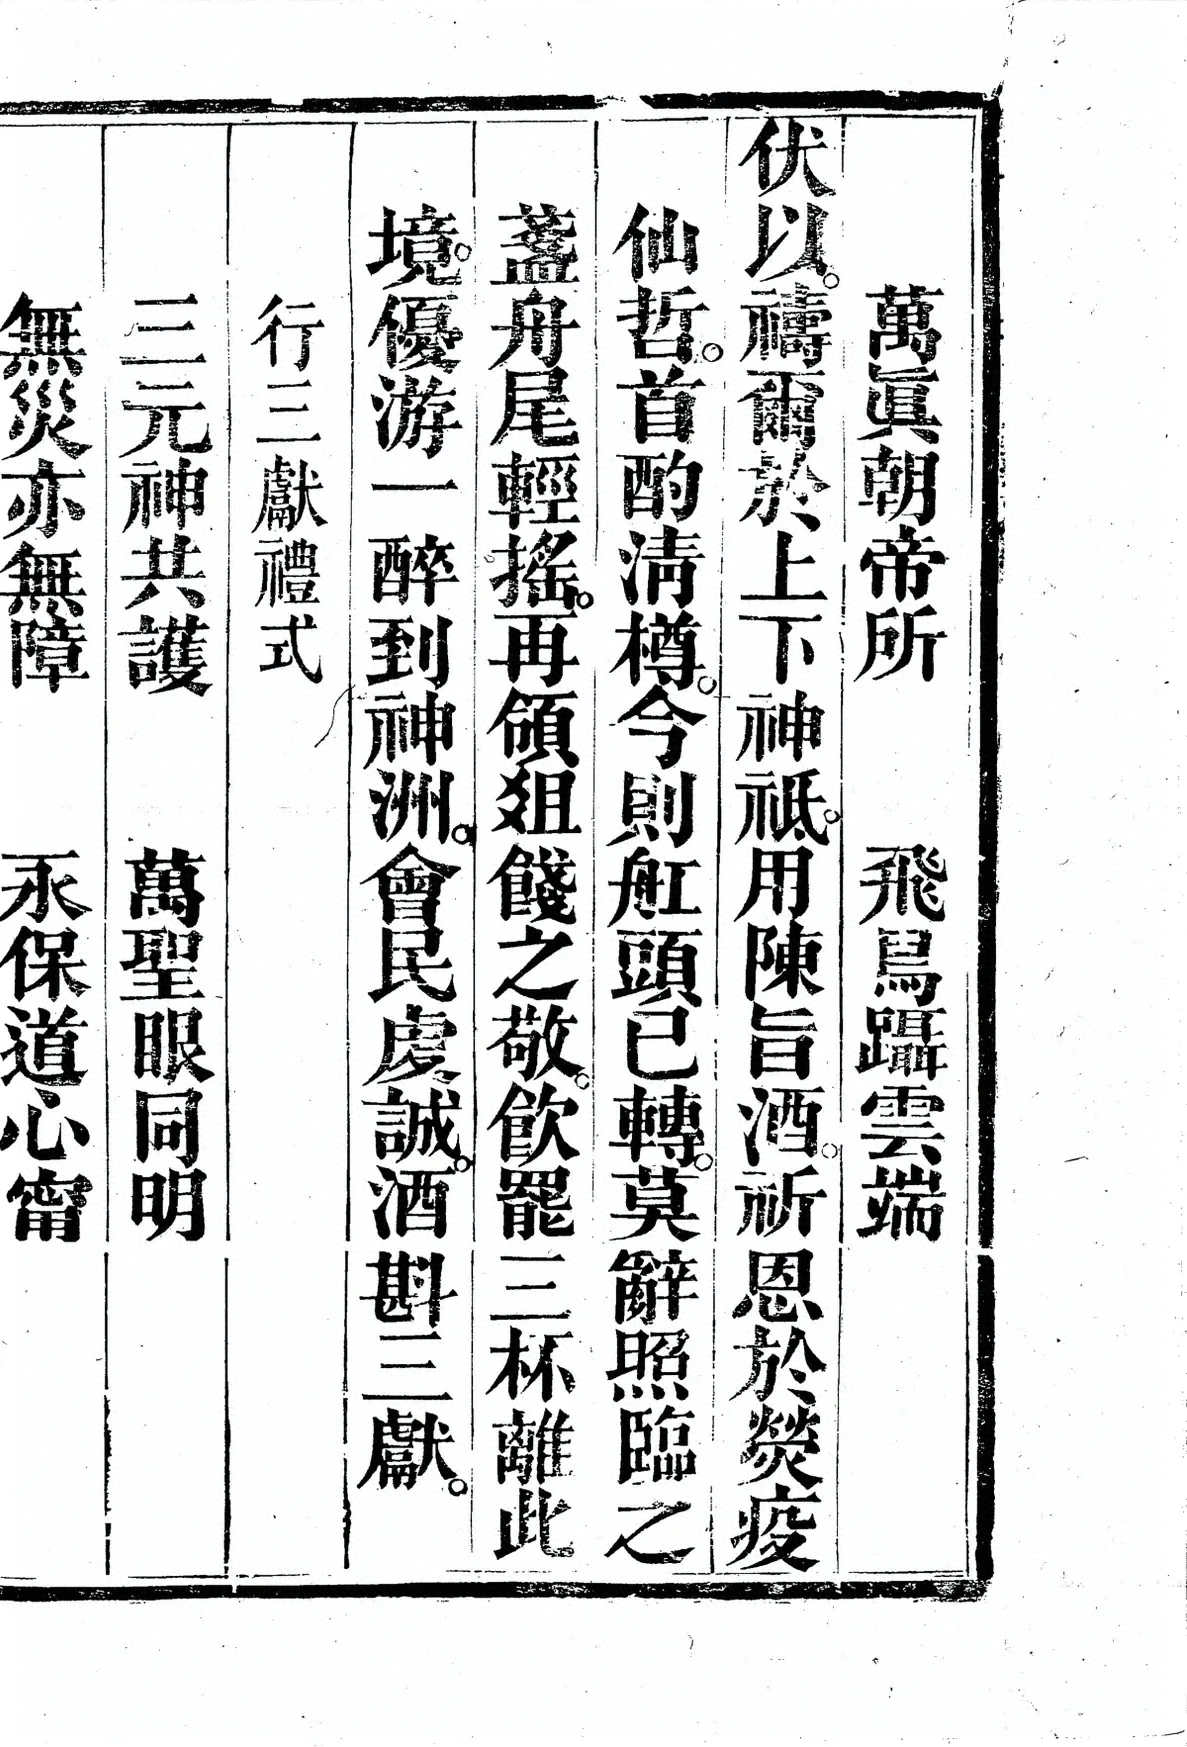 萬眞朝帝所　飛舃躡雲端
伏以。禱爾於上下神祗。用陳旨酒。祈恩於熒疫
仙哲。首酌淸樽。今則舡頭已轉。莫辭照臨之
盞舟尾輕搖。再領俎餞之敬。飮罷三杯離此
境。優游一醉到神洲。會民虔誠。酒斟三獻。
行三獻禮式
三元神共護　萬聖眼同明
無災亦無障　永保道心甯